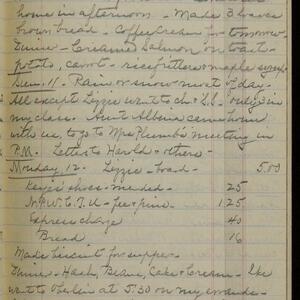 home in afternoon. - Made 3 loaves
brown bread. - Coffee cream for tomorrow.
Dinner - Creamed Salmon on toast -
potato, carrot - rice fritters & maple syrup.
Sun. 11. Rain or snow most of day.
All except Lizzie went to ch. & S.S. - in
my class. Aunt Albina came home
with us, to go to Mrs Plumb's meeting in
P.M. Letters to Harold & others -
Monday 12. Lizzie - board - 5.00
shoes - mended - 25
N.F.W.C.T.U - fee & pins - 1.25
Express charge 40
Bread 16
Made biscuit for supper -
Dinner - Hash, Beans, Cake & Cream -
went to Oberlin at 5:30 on my errands -